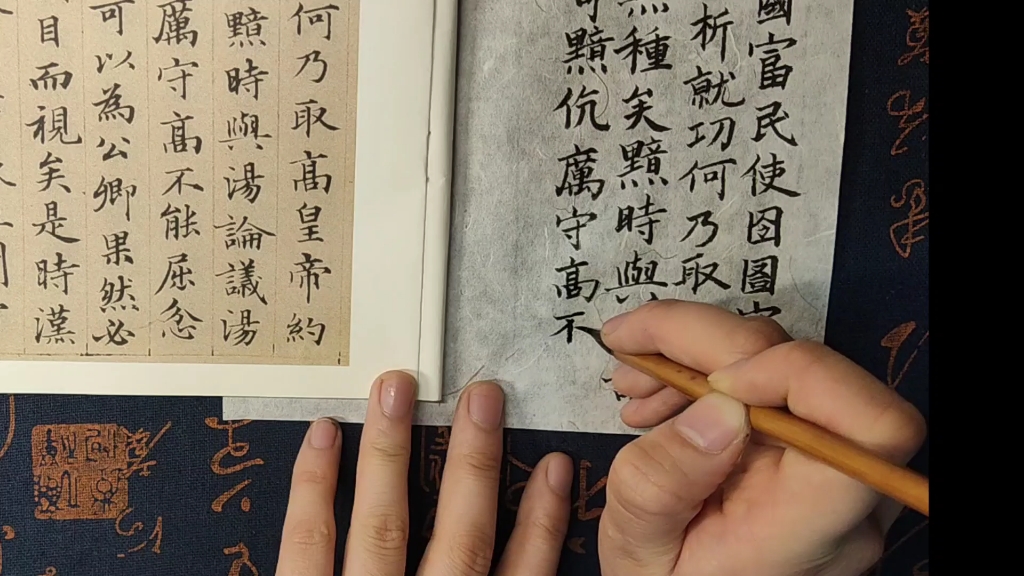 國富民使囹圄
析就功何乃取
種矣黯時與
黯伉厲守高不
何乃取高皇帝約
黯時與湯論議湯
厲守高不能屈忿
可以為公卿果然必
目而視矣是時漢